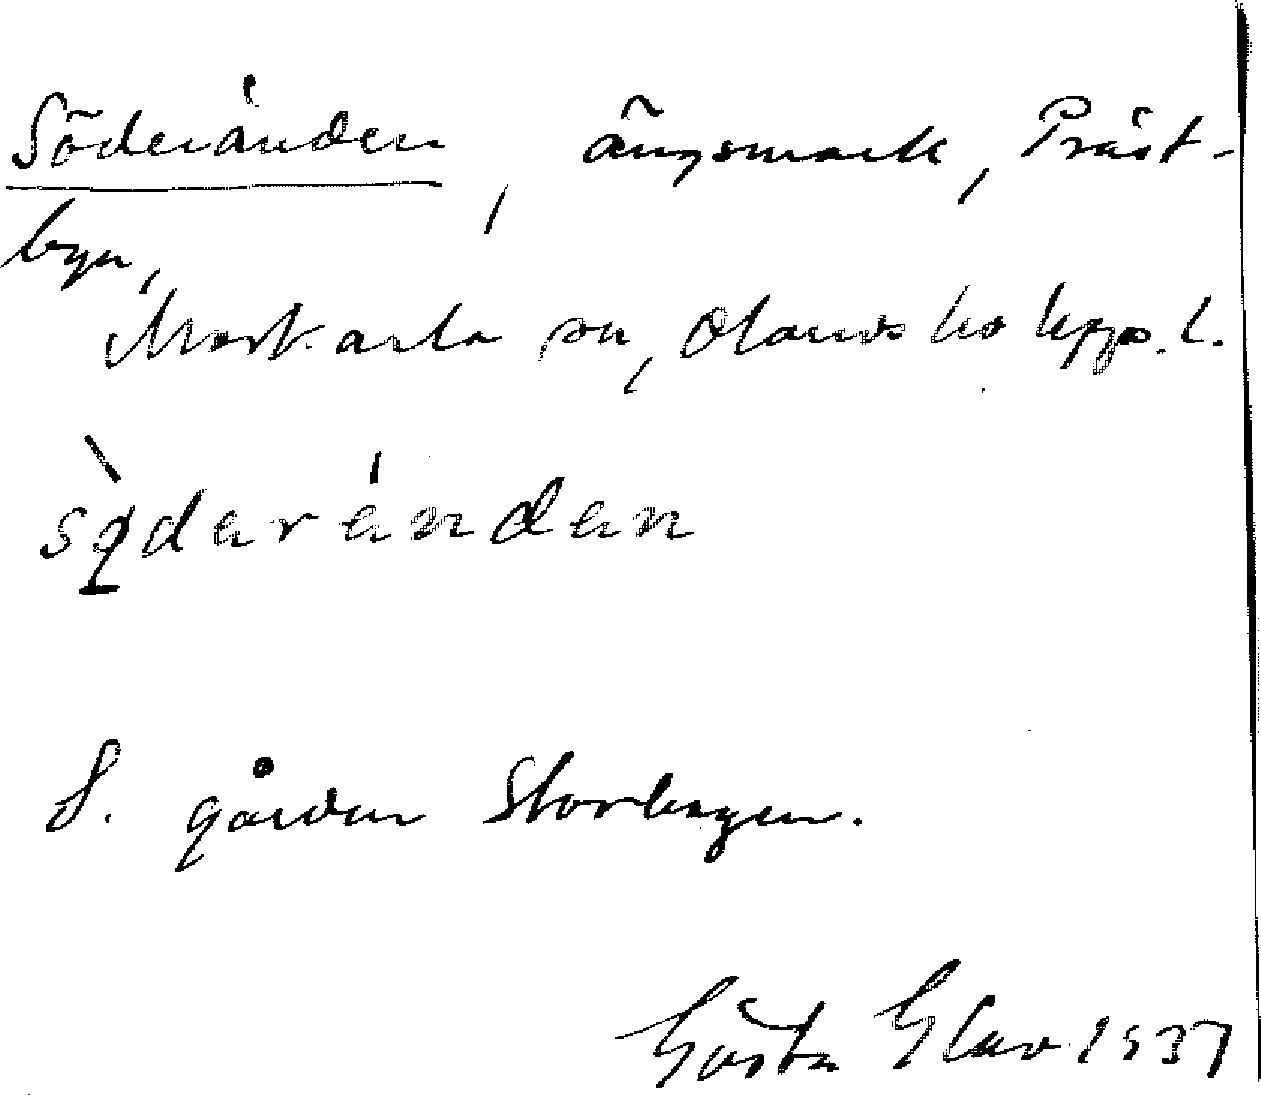 Söderänden, ängsmark, Präst-
byn,
Morkarla sn, Olands hd Upps. l.
sö̀derǽndan
S. gården Storhagen.
Gösta Elav 1937